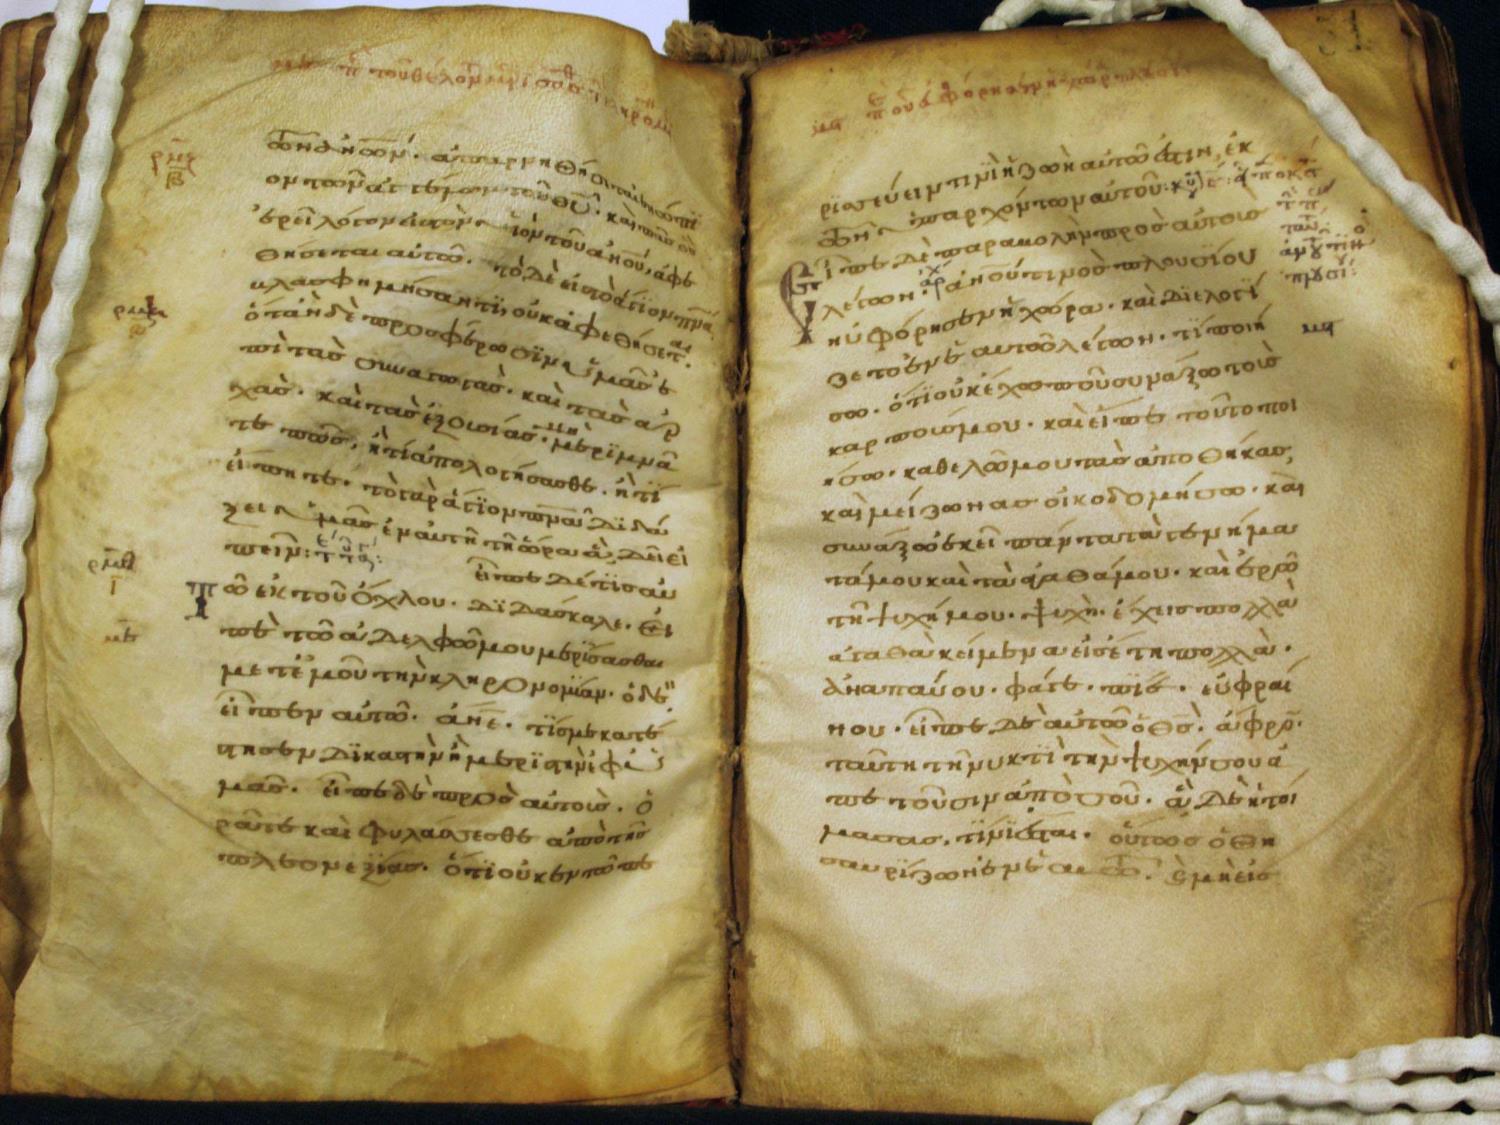 πων· ἀπαρνηθήσεται ἐνώπι
ον τῶν ἀγγέλων τοῦ θυ· καὶ πᾶς ὃς
ἐρεῖ λόγον εἰς τὸν υἱὸν τοῦ ἀνου, ἀφε
θήσεται αὐτῶ. τῶ δὲ εἰς τὸ ἅγιον πνα
βλασφημήσαντι, οὐκ ἀφεθήσεται.
ὅταν δὲ προσφέρωσιν ὑμᾶς ἐ
πὶ τὰς συναγωγὰς· καὶ τὰς ἀρ
χὰς· καὶ τὰς ἐξουσίας· μὴ μεριμνᾶ
τε πῶς, ἢ τί ἀπολογήσασθε· ἢ τί
εἴπητε· τὸ γὰρ ἅγιον πνα διδά
ξει ὑμᾶς ἐν αὐτῆ τῆ ὥρα ἃ δεῖ εἰ
πεῖν:
εἶπε δέ τις αυ
Τῶ ἐκ τοῦ ὄχλου· διδάσκαλε· εἰ
πὲ τῶ ἀδελφῶ μου μερίσασθαι
μετ' ἐμοῦ τὴν κληρονομίαν· ὁ δὲ
εἶπεν αὐτῶ· ανε· τίς με κατέ
στησεν δικαστὴν ἢ μεριστὴν ἐφ' ὑ
μᾶς· εἶπε δὲ πρὸς αὐτοὺς· ὁ
ρᾶτε καὶ φυλάσσεσθε ἀπὸ τῆς
πλεονεξίας· ὅτι οὐκ ἐν τῶ πε
ρισσεύειν τινὶ ἡ ζωὴ αὐτῶ ἐστιν, ἐκ
τῶν ὑπαρχόντων αὐτοῦ:
Εἶπε δὲ παραβολὴν πρὸς αὐτοὺς
λέγων· ανου τινος πλουσίου
ηὐφόρησεν ἡ χώρα· καὶ διελογί
ζετο ἐν ἑαυτῶ λέγων· τί ποιή
σω· ὅτι οὐκ ἔχω ποῦ συνάξω τοὺς
καρπούς μου· καὶ εἶπε τοῦτο ποι
ήσω· καθελῶ μου τὰς ἀποθήκας
καὶ μείζωνας οἰκοδομήσω· καὶ
συνάξω ἐκεῖ πάντα τὰ γενήμα
τά μου καὶ τὰ ἀγαθά μου· καὶ ἐρῶ
τῆ ψυχῆ μου· ψυχὴ· ἔχεις πολλὰ
ἀγαθὰ κείμενα εἰς ἔτη πολλὰ·
ἀναπαύου· φάγε· πίε· εὐφραί
νου· εἶπε δὲ αὐτῶ ὁ θς· ἄφρον·
ταύτη τῆ νυκτὶ τὴν ψυχήν σου ἀ
παιτοῦσιν ἀπὸ σοῦ· ἃ δὲ ἡτοί
μασας, τίνι ἔσται· οὕτως ὁ θη
σαυρίζων ἑαυτῶ· καὶ μὴ εἰς